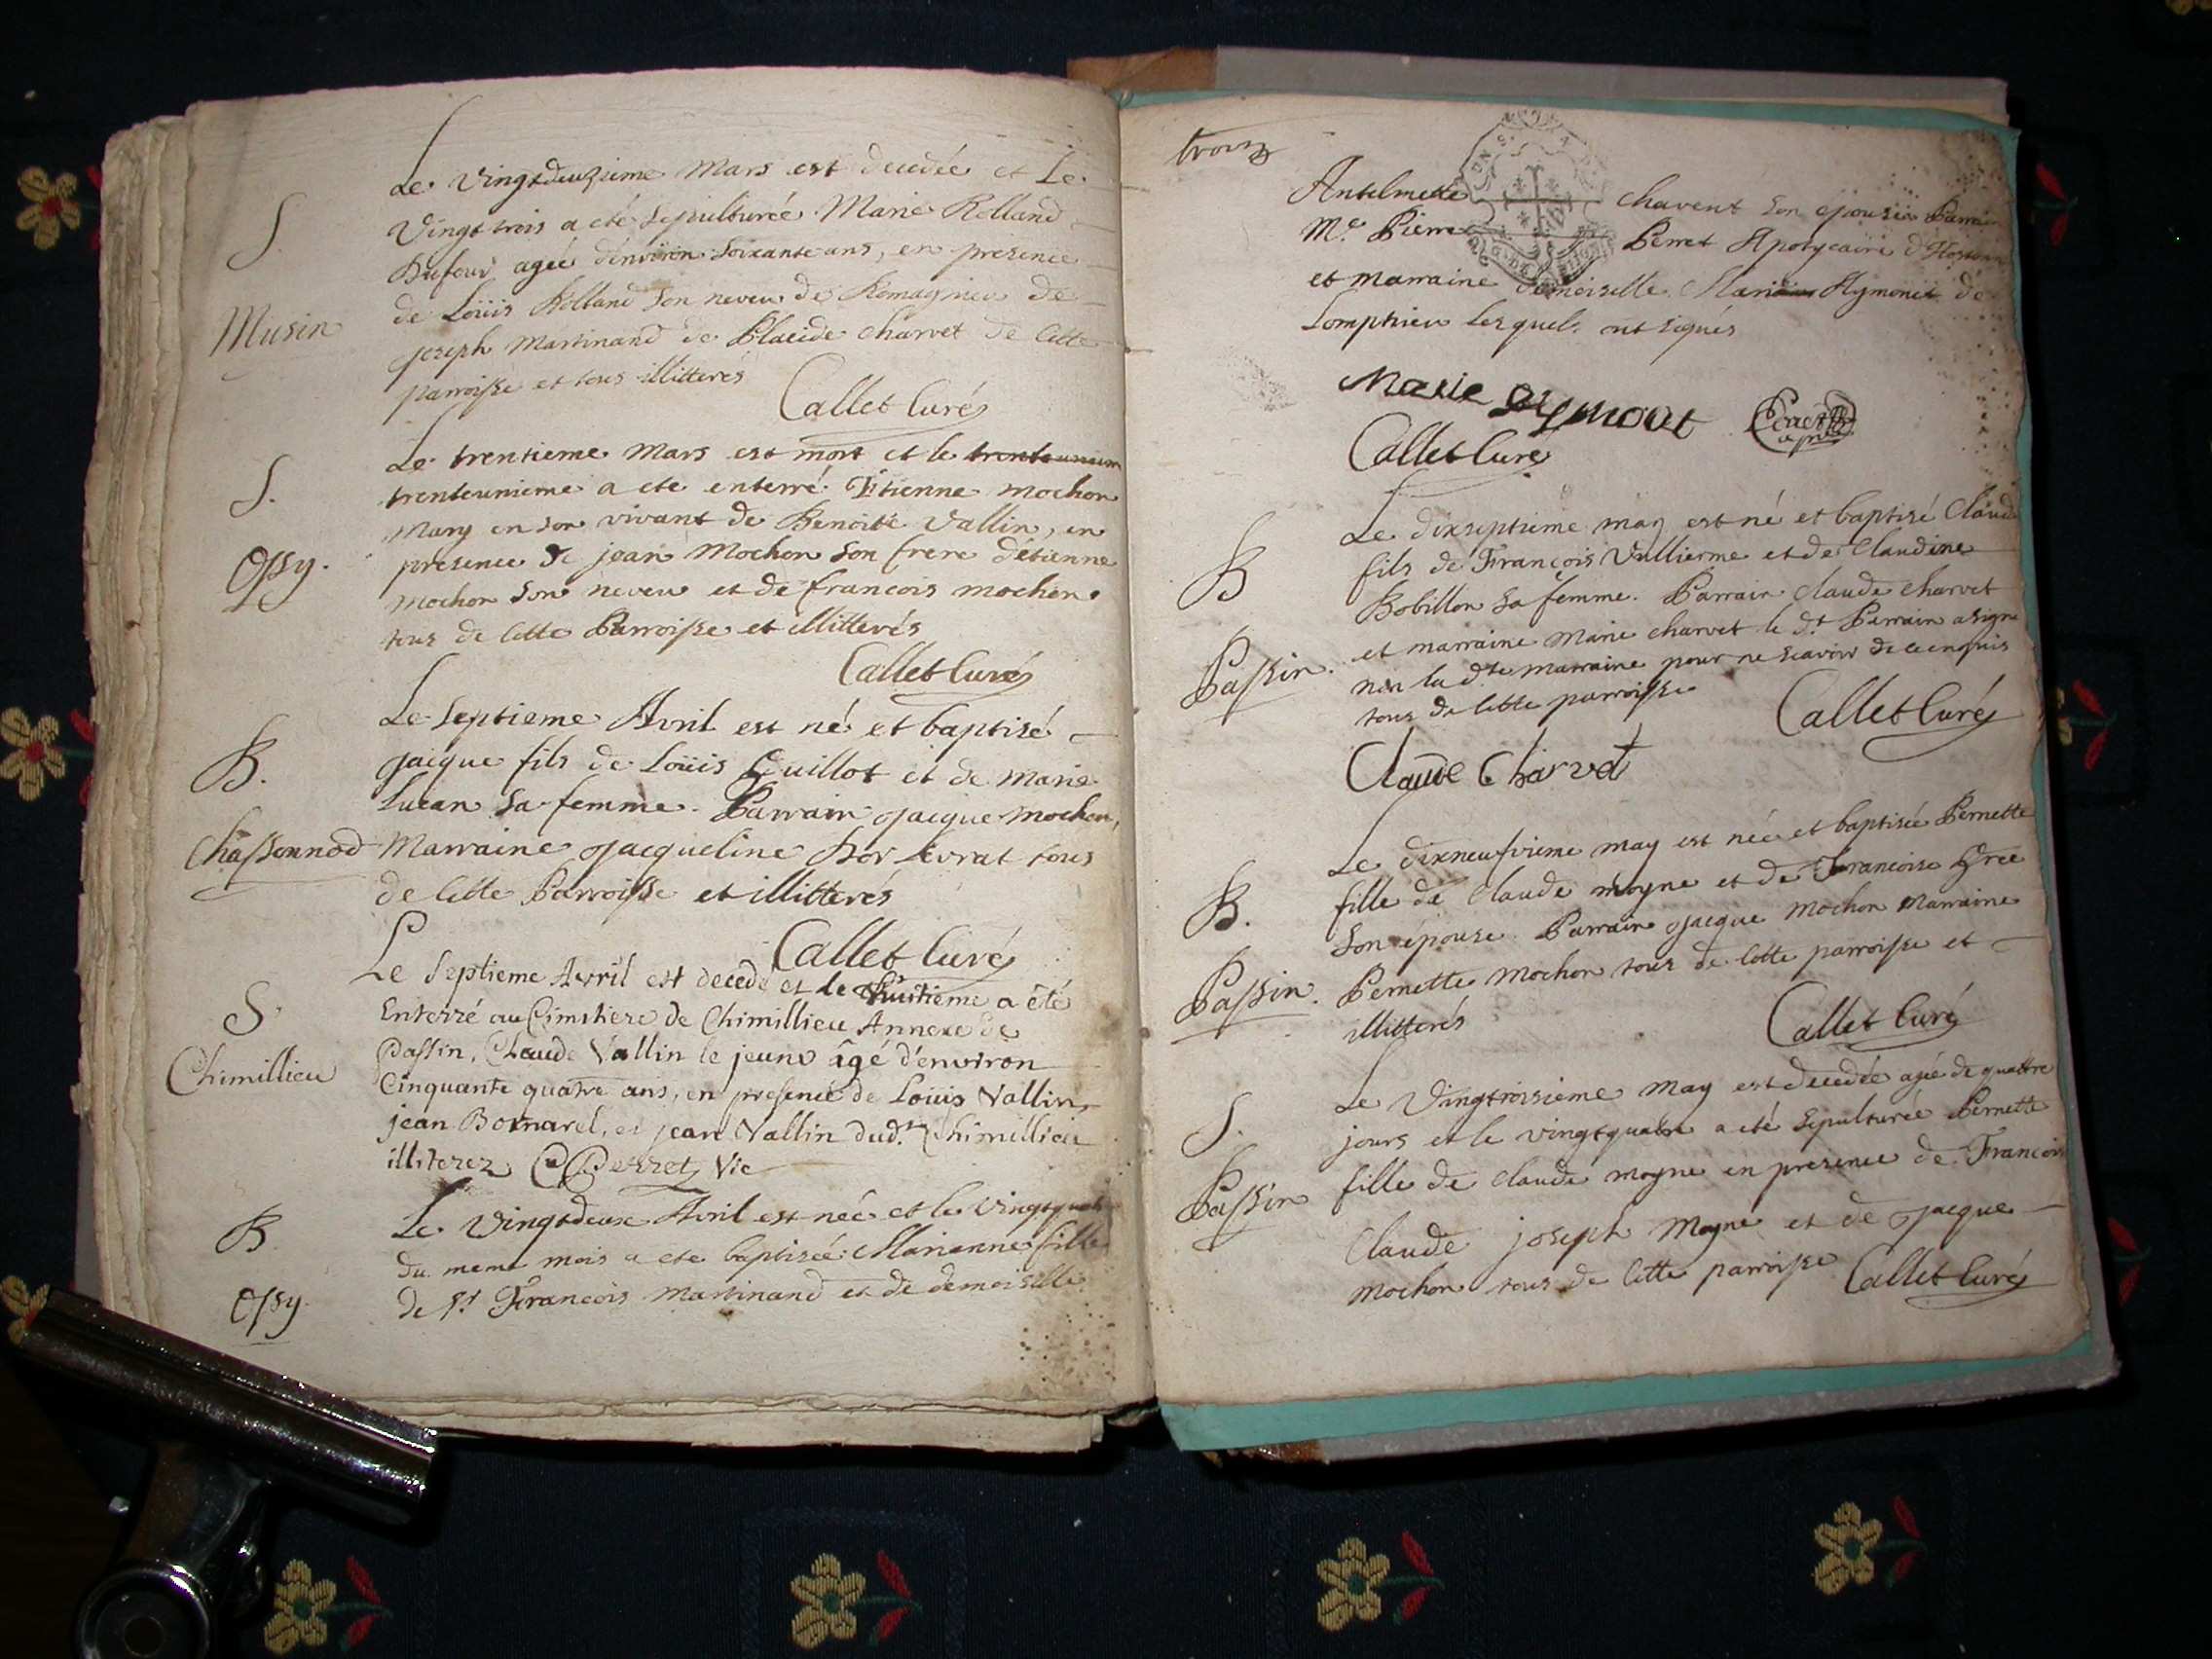 Le vingtdeuzieme Mars est decedée et Le
S.
vingt trois a eté sepulturée Marie Rolland
Dufour agée d'environ soixante ans, en presence
Musin
de Loüis Rolland son neveu de Romagnieu de
joseph Martinand de Placide Charvet de Cette
parroisse et tous illitterés
Callet Curé
Le trentieme Mars est mort et le
S.
trenteunieme a ete enterré Etienne Mochon
Mary en son vivant de Benoite Vallin, en
Ossy.
presence de jean Mochon son frere d'étienne
Mochon son neveu et de francois mochon
tous de Cette Parroisse et illitterés
Callet Curé
Le Septieme Avril est né et baptisé
B.
jacque fils de Loüis Guillot et de Marie
Lucan sa femme. Parrain jacque Mochon,
Chassonnod
Marraine jacqueline tous
de Cette Parroisse et illitterés
Callet Curé
Le Septieme Avril est decedé et le huitieme a été
S
Enterré au Cimetiere de Chimillieu Annexe de
Chimillieu
Passin, Claude Vallin le jeune âgé d'environ
Cinquante quatre ans, en presence de Loüis Vallin,
jean Bornarel, et jean Vallin dud.t Chimillieu
illiterez. Perret Vic
Le vingtdeux Avril est née et le vingtquatre
B
du meme mois a ete baptisée Marianne fille
Ossy.
de s.r Francois Martinand et de demoiselle
trois
Anselmette Chavent son epouse Parrain
M.e Pierre Perret Apotycaire d'Hostonne
et Marraine demoiselle Marianne Aymonit de
Lompnieu Lesquels ont signés
Marie Aymonet Perret
Callet Curé
Le dixseptieme may est né et baptisé Claude
B
fils de François Vullierme et de Claudine
Bobillon sa femme. Parrain Claude Charvet
et marraine Marie Charvet le d.t Parrain a signé
Passin.
non la d.te marraine pour ne scavoir de ce enquis
tous de Cette parroisse
Callet Curé
Claude Charvet
Le dixneufvieme may est née et baptisée Pernette
B.
fille de Claude moyne et de Francoise
son épouse. Parrain jacque Mochon Marraine
Passin.
Pernette Mochon tous de Cette parroisse et
illitterés
Callet Curé
Le vingtroisieme may est decedée agée de quattre
S.
jours et le vingtquatre a eté sepulturée Pernette
Passin
fille de Claude moyne en presence de Francois
Claude joseph Moyne et de jacque
Mochon tous de Cette parroisse
Callet Curé